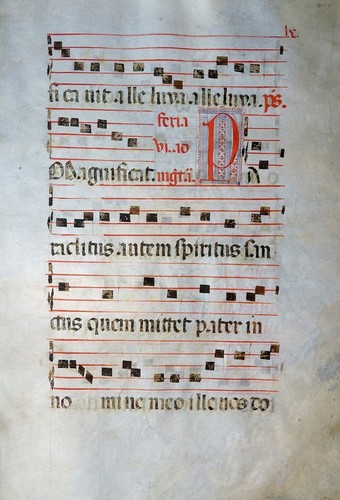 lx.
fi ca uit alle luya alle luya. ps.
feria
vi. ad
Magnificat. P A
raclitus autem spiritus san
ctus quem mittet pater in
no mine meo ille uos do